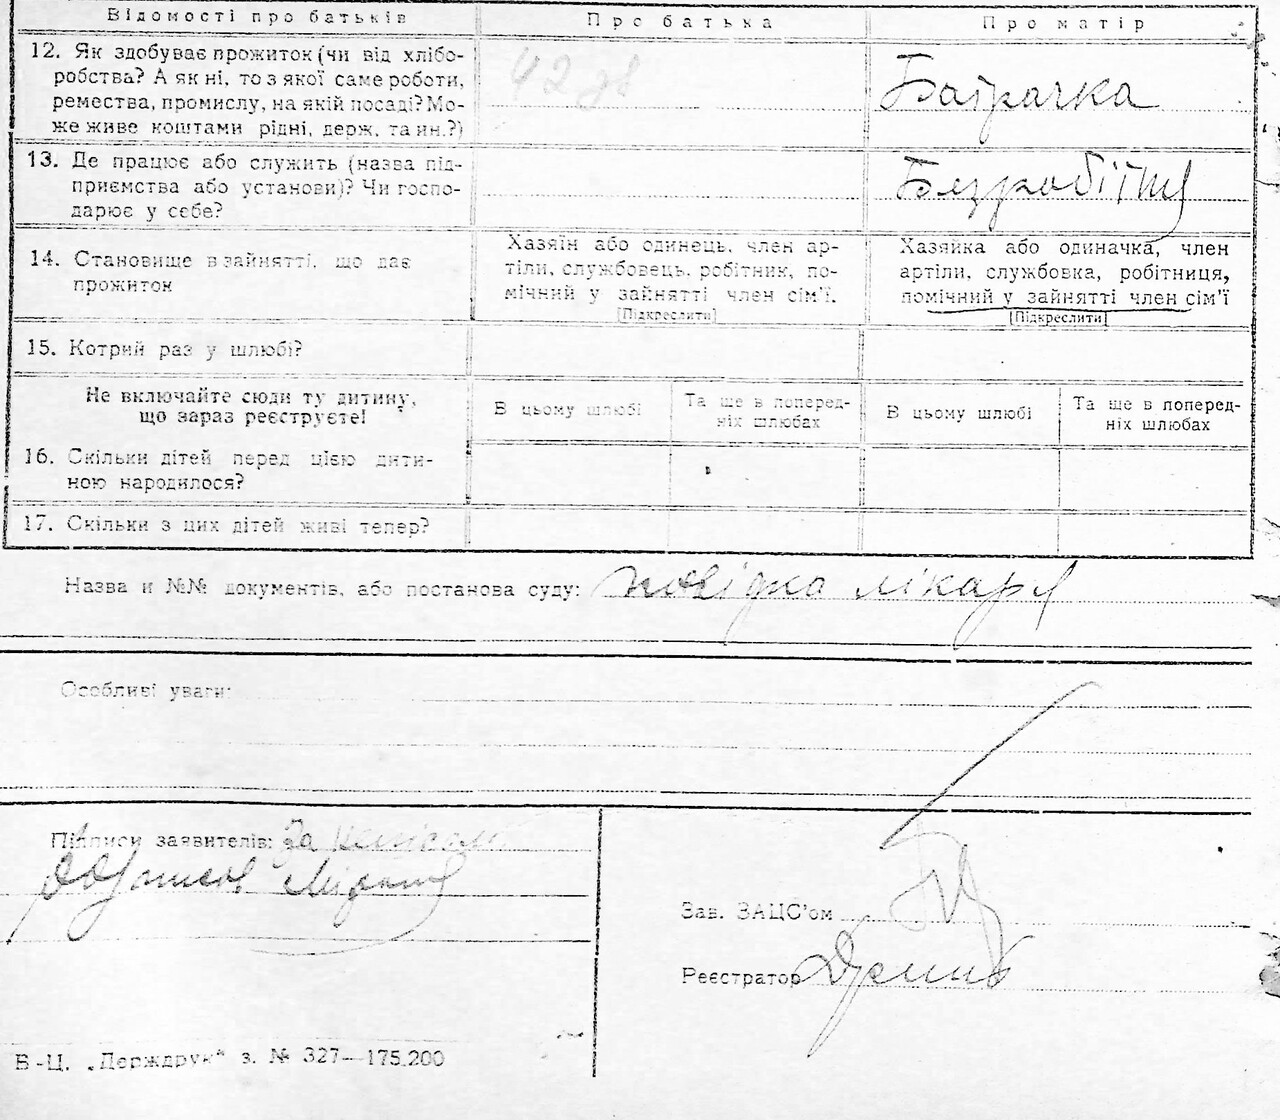 Відомості про батьків Про батька Про матір
12. Як здобуває прожиток (чи від хлібо-
робства? А як ні, то з якої саме роботи,
ремества, промислу, на якій посаді? Мо-
же живе коштами рідні, держ. та ин.?)
42
Батрачка
13. Де працює або служить (назва під-
приємства або установи)? Чи госпо-
дарює у себе?
Безробітня
14. Становище в зайнятті, що дає
прожиток
Хазяїн або одинець, член ар-
тіли, службовець, робітник, по-
мічний у зайнятті член сім'ї.
[Підкреслити]
Хазяйка або одиначка, член
артіли, службовка, робітниця,
помічний у зайнятті член сім'ї
[Підкреслити]
15. Котрий раз у шлюбі?
Не включайте сюди ту дитину,
що зараз реєструєте!
В цьому шлюбі
Та ще в поперед-
ніх шлюбах
В цьому шлюбі
Та ще в поперед-
ніх шлюбах
16. Скільки дітей перед цією дити-
ною народилося?
17. Скільки з цих дітей живі тепер?
Назва и №№ документів, або постанова суду: довідка лікаря
Особливі уваги:
Підписи заявителів: За
Зав. ЗАЦС'ом
Реєстратор
В-Ц. „Держдрук“ з. № 327—175.200